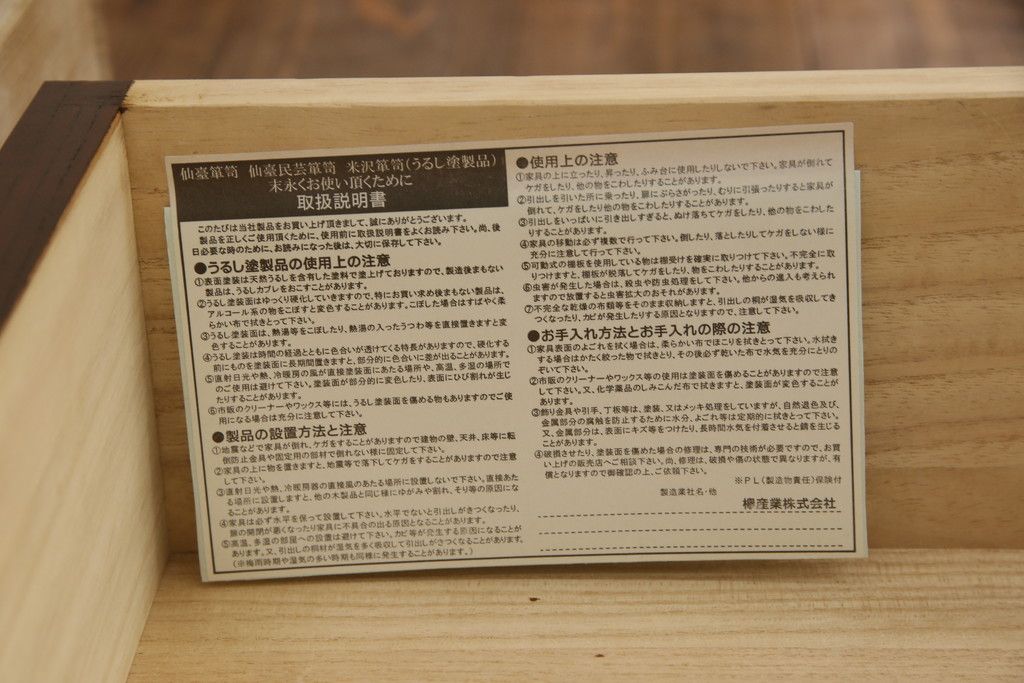 仙臺箪笥 仙臺民芸箪笥 米沢箪笥(うるし塗製品)
末永くお使い頂くために
取扱説明書
このたびは当社製品をお買い上げ頂きまして、誠にありがとうございます。
製品を正しくご使用頂くために、使用前に取扱説明書をよくお読み下さい。尚、後
日必要な時のために、お読みになった後は、大切に保存して下さい。
●うるし塗製品の使用上の注意
①表面塗装は天然うるしを含有した塗料で塗上げておりますので、製造後まもない
製品は、うるしカブレをおこすことがあります。
②うるし塗装面はゆっくり硬化していきますので、特にお買い求め後まもない製品は、
アルコール系の物をこぼすと変色することがあります。こぼした場合はすばやく柔
らかい布で拭きとって下さい。
③うるし塗装面は、熱湯等をこぼしたり、熱湯の入ったうつわ等を直接置きますと変
色することがあります。
④うるし塗装は時間の経過とともに色合いが透けてくる特長がありますので、硬化する
前にものを塗装面に長期間置きますと、部分的に色合いに差が出ることがあります。
⑤直射日光や熱、冷暖房の風が直接塗装面にあたる場所や、高温、多湿の場所で
のご使用は避けて下さい。塗装面が部分的に変色したり、表面にひび割れが生じ
たりすることがあります。
⑥市販のクリーナーやワックス等には、うるし塗装面を傷める物もありますのでご使
用になる場合は充分に注意して下さい。
●製品の設置方法と注意
①地震などで家具が倒れ、ケガをすることがありますので建物の壁、天井、床等に転
倒防止金具や固定用の部材で倒れない様に固定して下さい。
②家具の上に物を置きますと、地震等で落下してケガをすることがありますので注意
して下さい。
③直射日光や熱、冷暖房器の直接風のあたる場所に設置しないで下さい。直接あた
る場所に設置しますと、他の木製品と同じ様にゆがみや割れ、そり等の原因にな
ることがあります。
④家具は必ず水平を保って設置して下さい。水平でないと引出しがきつくなったり、
扉の開閉が悪くなったり家具に不具合の出る原因となることがあります。
⑤高温、多湿の部屋への設置は避けて下さい。カビ等が発生する原因になることが
あります。又、引出しの桐材が湿気を多く吸収して引出しがきつくなることがあります。
(※梅雨時期や湿気の多い時期も同様に発生することがあります。)
●使用上の注意
①家具の上に立ったり、昇ったり、ふみ台に使用したりしないで下さい。家具が倒れて
ケガをしたり、他の物をこわしたりすることがあります。
②引出しを引いた所に乗ったり、扉にぶらさがったり、むりに引張ったりすると家具が
倒れて、ケガをしたり他の物をこわしたりすることがあります。
③引出しをいっぱいに引き出しすぎると、ぬけ落ちてケガをしたり、他の物をこわした
りすることがあります。
④家具の移動は必ず複数で行って下さい。倒したり、落としたりしてケガをしない様に
充分に注意して行って下さい。
⑤可動式の棚板を使用している物は棚受けを確実に取りつけて下さい。不完全に取
りつけますと、棚板が脱落してケガをしたり、物をこわしたりすることがあります。
⑥虫害が発生した場合は、殺虫や防虫処理をして下さい。他からの進入も考えられ
ますので放置すると虫害拡大のおそれがあります。
⑦不完全な乾燥の布類等をそのまま収納しますと、引出しの桐が湿気を吸収してき
つくなったり、カビが発生したりする原因となりますので、注意して下さい。
●お手入れ方法とお手入れの際の注意
①家具表面のよごれを拭く場合は、柔らかい布でほこりを拭きとって下さい。水拭き
する場合はかたく絞った物で拭きとり、その後必ず乾いた布で水気を充分にとりの
ぞいて下さい。
②市販のクリーナーやワックス等の使用は塗装面を傷めることがありますので注意
して下さい。又、化学薬品のしみこんだ布で拭きますと、塗装面が変色することが
あります。
③飾り金具や引手、丁板等は、塗装、又はメッキ処理をしていますが、自然退色及び、
金属部分の腐触を防止するために水分、よごれ等は定期的に拭きとって下さい。
又、金属部分は、表面にキズ等をつけたり、長時間水気を付着させると錆を生じる
ことがあります。
④破損させたり、塗装面を傷めた場合の修理は、専門の技術が必要ですので、お買
い上げの販売店へご相談下さい。尚、修理は、破損や傷の状態で異なりますが、有
償となりますので御確認の上、ご依頼下さい。
※PL(製造物責任)保険付
製造業社名・他
欅産業株式会社